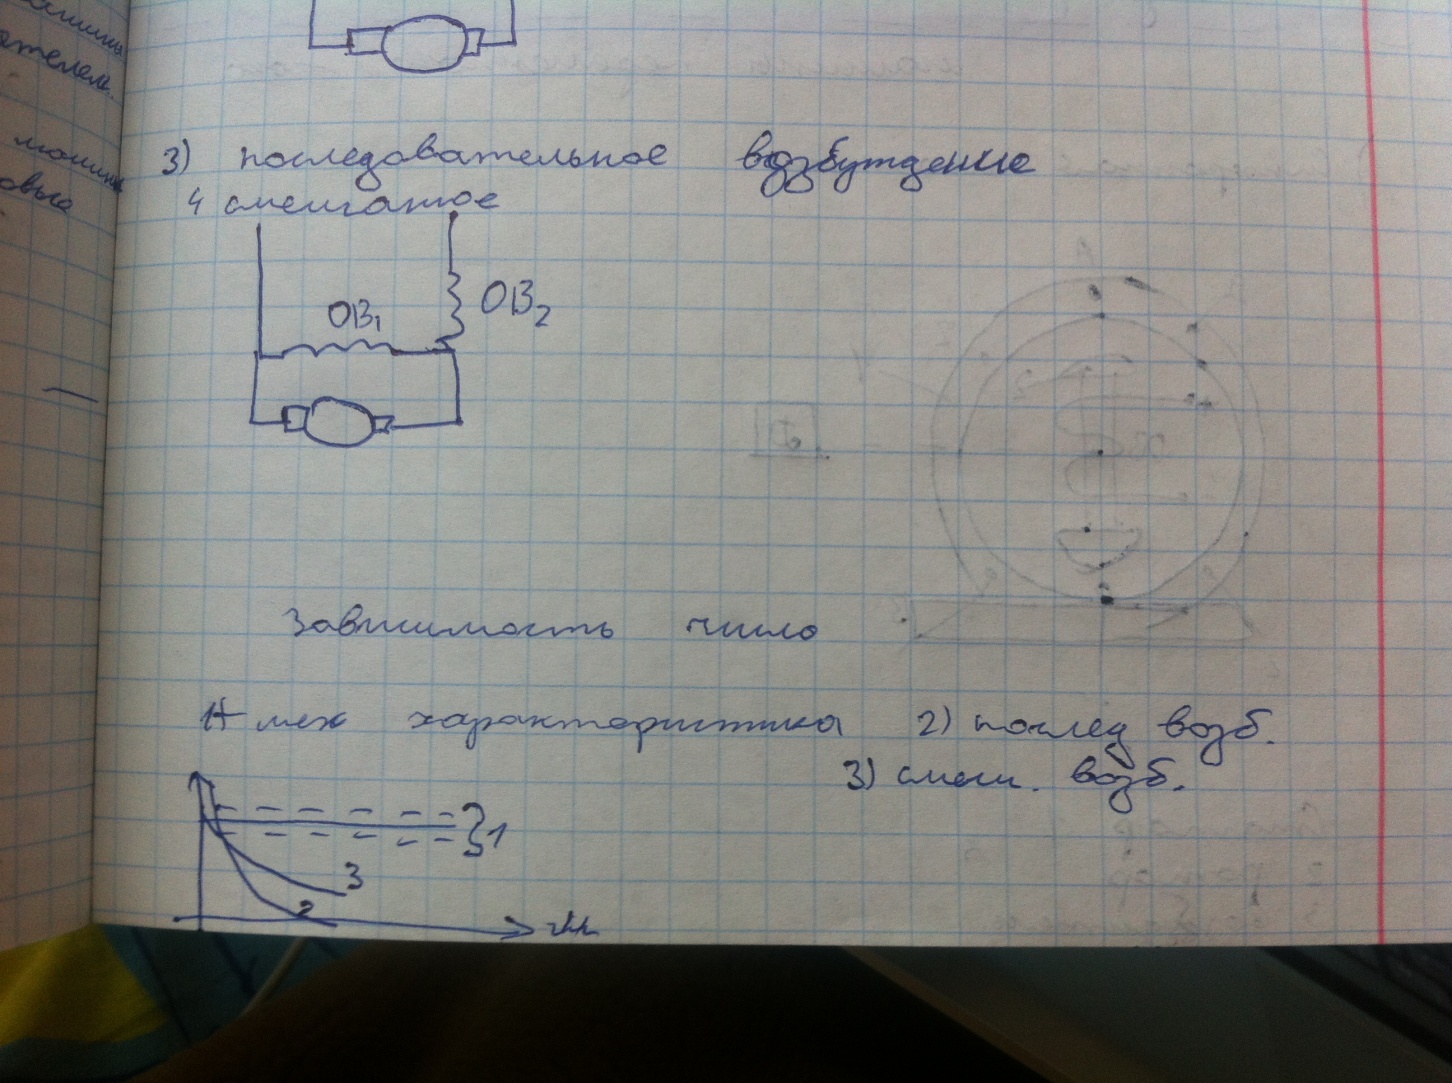 3) последовательное возбуждение
4 смешатое
ОВ₁
ОВ₂
Зависимость число
мех характеристика 2) послед возб.
3) смеш. возб.
1
3
2